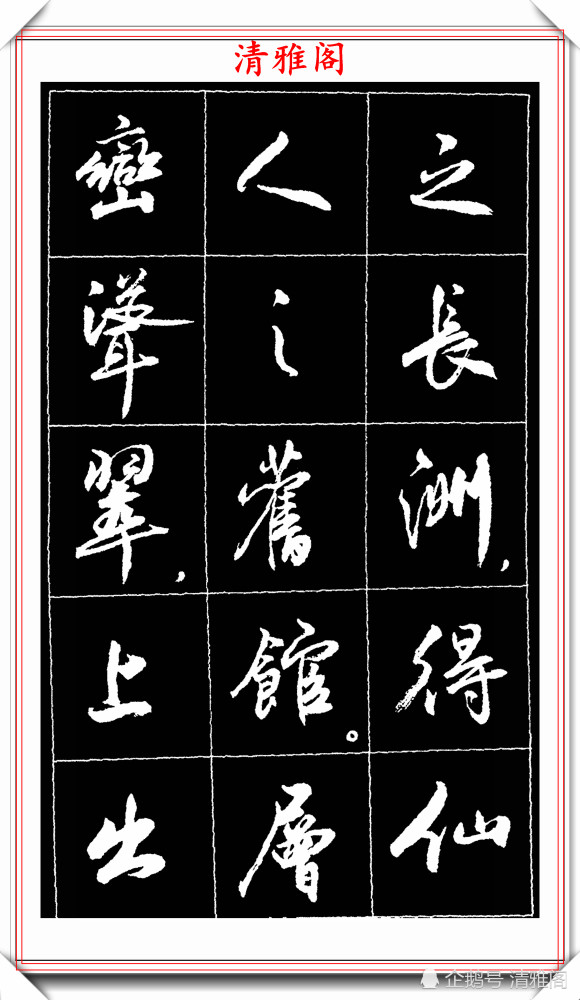 清雅阁
之長洲，得仙
人之舊館。層
巒聳翠，上出
企鹅号 清雅阁